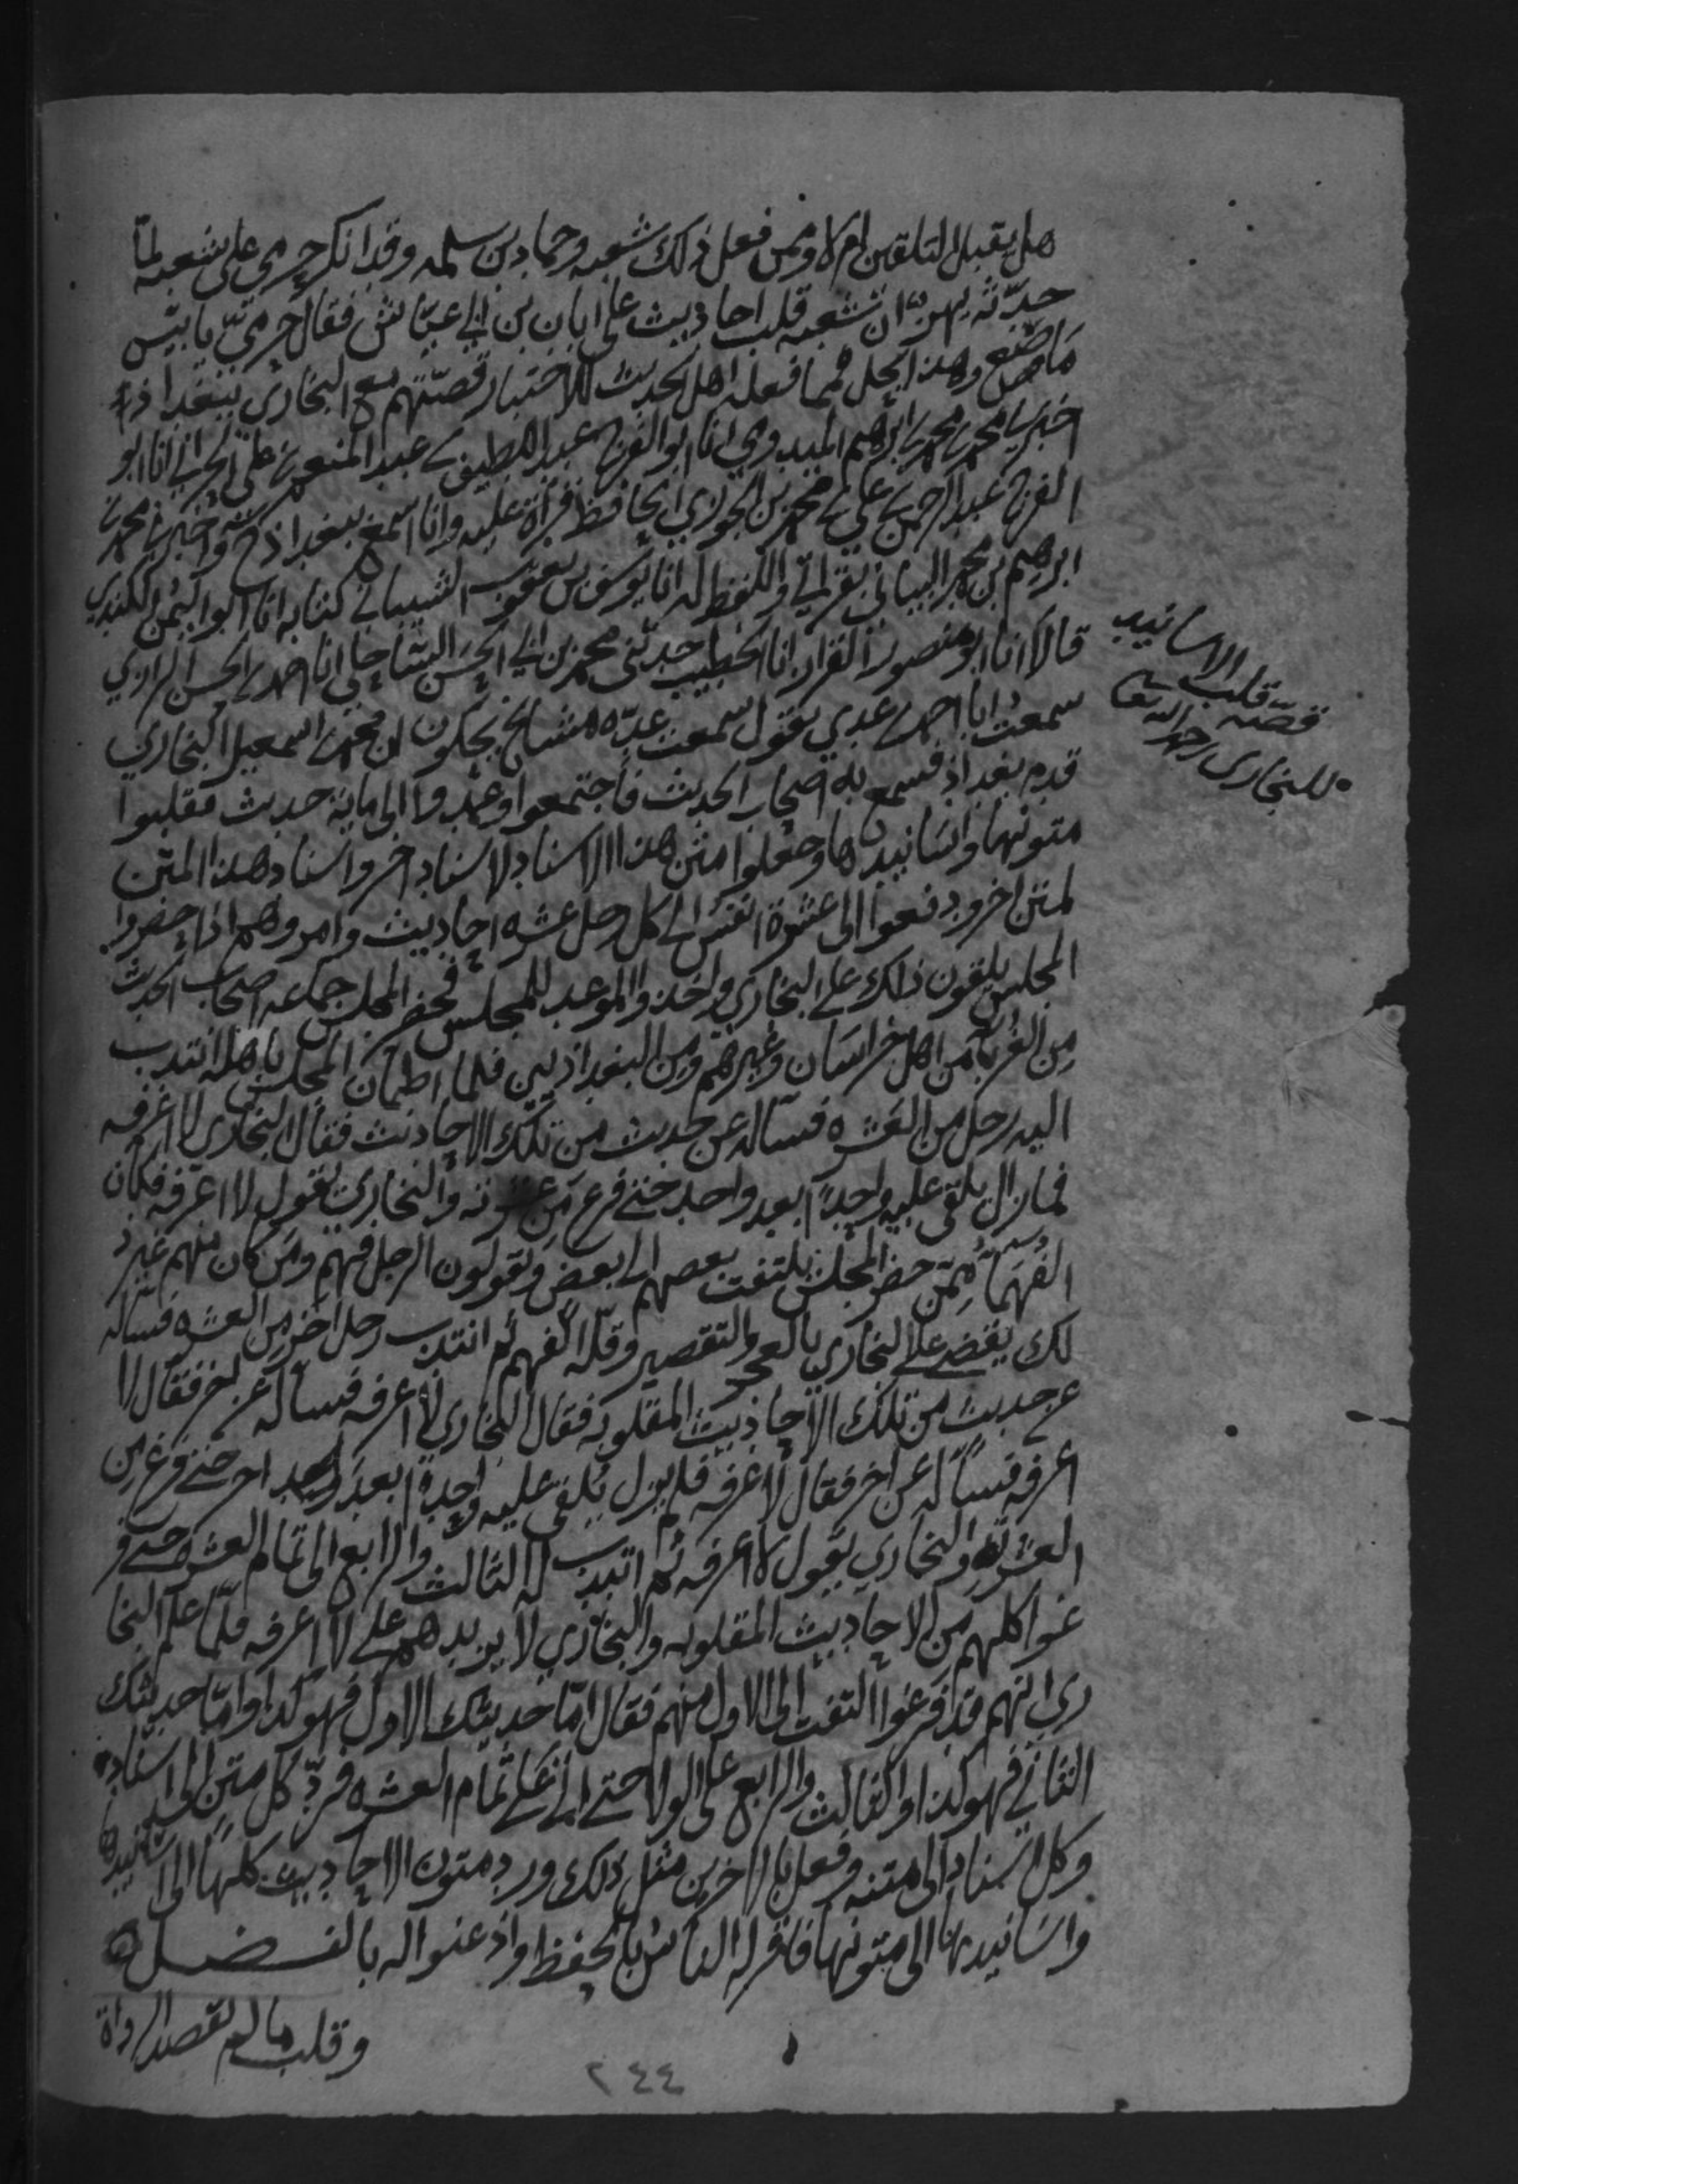 هل يقبل التلقين ام لا وممن فعل ذلك شعبه وحماد بن سلمه وقد انكر حرمي على شعبه لما
حدّثه بهز ان شعبه قلب احاديث على ابان بن ابي عياش فقال حرميّ يا بئس
ما صنع وهذا يحل فمما فعله اهل الحديث للاختبار قصّتهم مع البخاري ببغداذ
اخبرنا محمد بن محمد بن ابرهيم الميدومي انا ابو الفرج عبد اللطيف بن عبد المنعم بن علي الحراني انا ابو
الفرج عبد الرحمن بن علي بن محمد بن الجوزي الحافظ قراة عليه وانا اسمع ببغداذ ح واخبرني محمد بن
ابرهيم بن محمد البياني بقراتي واللفظ له انا يوسف بن يعقوب الشيباني كتابة انا ابو اليمن الكندي
قالا انا ابو منصور القزاز انا الخطيب حدثني محمد بن ابي الحسن الساحلي انا احمد بن الحسن الرازي
سمعت ابا احمد بن عدي يقول سمعت عدّه مشايخ يحكون ان محمد بن اسمعيل البخاري
قدم بغداذ فسمع به اصحاب الحديث فاجتمعوا وعمدوا الى ماية حديث فقلبوا
متونها واسانيدها وجعلوا متن هذا الاسناد لاسناد اخر واسناد هذا المتن
لمتن اخر ودفعوا الى عشرة انفس الى كل رجل عشره احاديث وامروهم اذا حضروا
المجلس يلقون ذلك على البخاري واخذوا الموعد للمجلس فحضر المجلس جماعه اصحاب الحديث
من الغرباء من اهل خراسان وغيرهم ومن البغداذيين فلما اطمان المجلس باهله انتدب
اليه رجل من العشره فساله عن حديث من تلك الاحاديث فقال البخاري لا اعرفه
فما زال يلقى عليه واحداً بعد واحد حتى فرغ من عشرته والبخاري يقول لا اعرفه فكان
الفهماء ممّن حضر المجلس يلتفت بعضهم الى بعض ويقولون الرجل فهم ومن كان منهم غير ذ
لك يقضي على البخاري بالعجز والتقصير وقلّة الفهم ثم انتدب رجل اخر من العشره فساله
عن حديث من تلك الاحاديث المقلوبه فقال البخاري لا اعرفه فساله عن اخر فقال لا
اعرفه فساله عن اخر فقال لا اعرفه فلم يزل يلقى عليه واحداً بعد واحد اخر حتى فرغ من
العشرة والبخاري يقول لا اعرفه ثم انتدب له الثالث والرابع الى تمام العشره حتى فر
غوا كلهم من الاحاديث المقلوبه والبخاري لا يزيدهم على لا اعرفه فلمّا علم البخا
ري انهم قد فرغوا التفت الى الاول منهم فقال امّا حديثك الاول فهو كذا وامّا حديثك
الثاني فهو كذا والثالث والرابع على الولا حتى اتى على تمام العشره فردّ كل متن الى اسناده
وكل اسناد الى متنه وفعل بالاخرين مثل ذلك ورد متون الاحاديث كلها الى اسانيدها
واسانيدها الى متونها فاقر له الناس بالحفظ واذعنوا له بالفضل
وقلب ما لم يقصد الرواة
قصّه قلب الاسانيد
للبخاري رحمه الله تعالى
٢٤٤